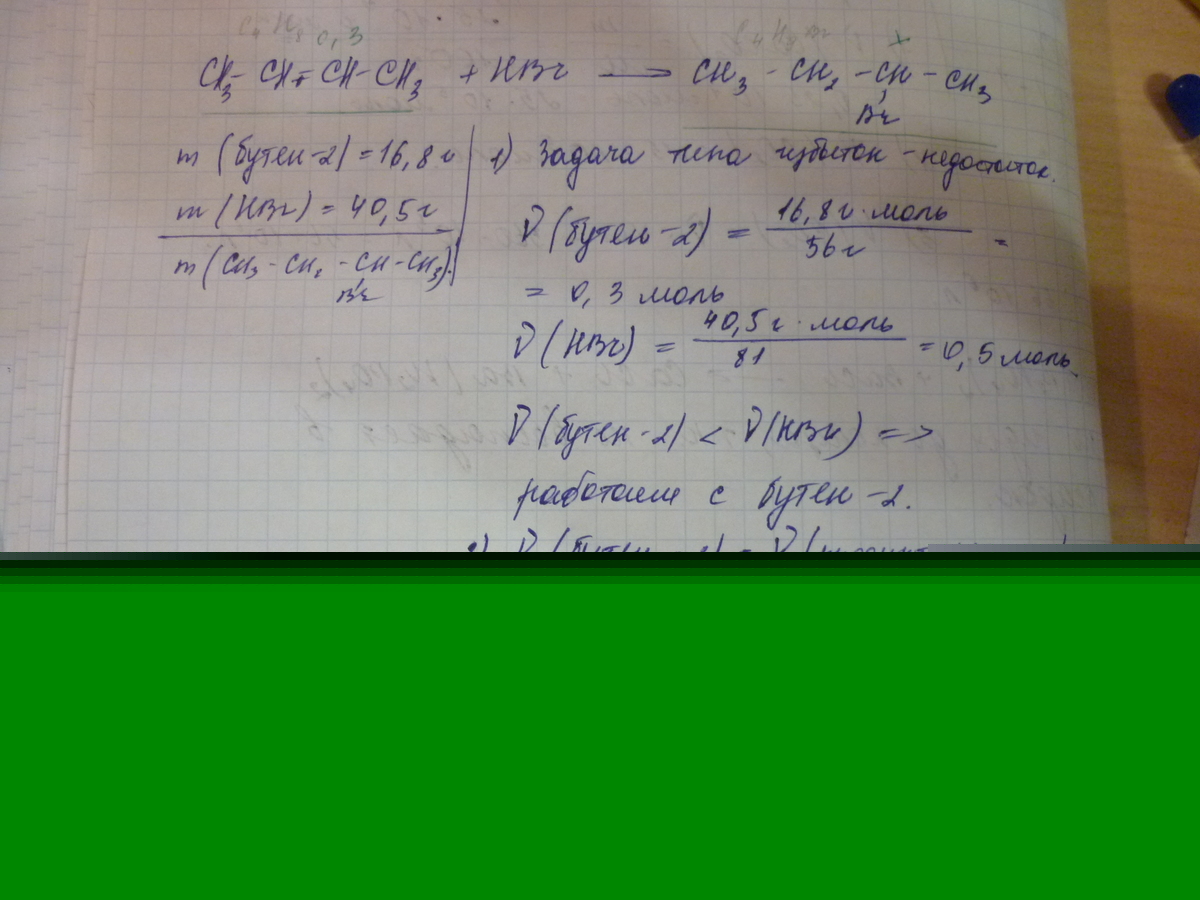 0,3 x
CH3 - CH = CH - CH3 + HBr → CH3 - CH2 - CH - CH3
Br
m (бутен-2) = 16,8 г
m (HBr) = 40,5 г
m (CH3 - CH2 - CH - CH3)
Br
1) Задача типа избыток - недостаток.
ν (бутен-2) = 16,8 г · моль / 56 г =
= 0,3 моль
ν (HBr) = 40,5 г · моль / 81 = 0,5 моль
ν (бутен-2) < ν (HBr) =>
работаем с бутен-2.